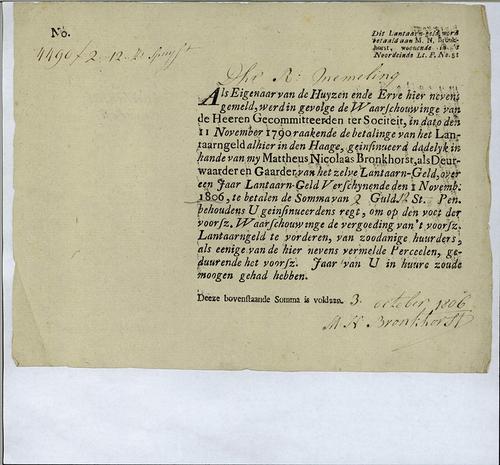 No.
Dit Lantaarn-geld word
betaald aan M. N. Bronk-
horst, woonende in 't
Noordeinde Lt. P. No. 51
4496 f 2 - 12
Dhr R: Memeling
Als Eigenaar van de Huyzen ende Erve hier nevens
gemeld, werd in gevolge de Waarschouwinge van
de Heeren Gecommitteerden ter Societeit, in dato den
11 November 1790 raakende de betalinge van het Lan-
taarngeld alhier in den Haage, geinsinueerd dadelyk in
hande van my Mattheus Nicolaas Bronkhorst, als Deur-
waarder en Gaarder van het zelve Lantaarn-Geld, over
een Jaar Lantaarn-Geld Verschynende den 1 Novemb.
1806, te betalen de Somma van 2 Guld. 12 St. Pen.
behoudens U geinsinueerdens regt, om op den voet der
voorsz. Waarschouwinge de vergoeding van 't voorsz.
Lantaarngeld te vorderen, van zoodanige huurders,
als eenige van de hier nevens vermelde Perceelen, ge-
duurende het voorsz. Jaar van U in huure zoude
moogen gehad hebben.
Deeze bovenstaande Somma is voldaan. 3. october 1806
M N Bronkhorst